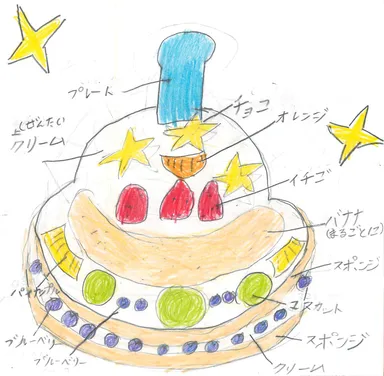 プレート
チョコ
オレンジ
ぜんたい
クリーム
イチゴ
バナナ
(まるごとに)
スポンジ
パイナップル
マスカット
ブルーベリー
ブルーベリー
スポンジ
クリーム